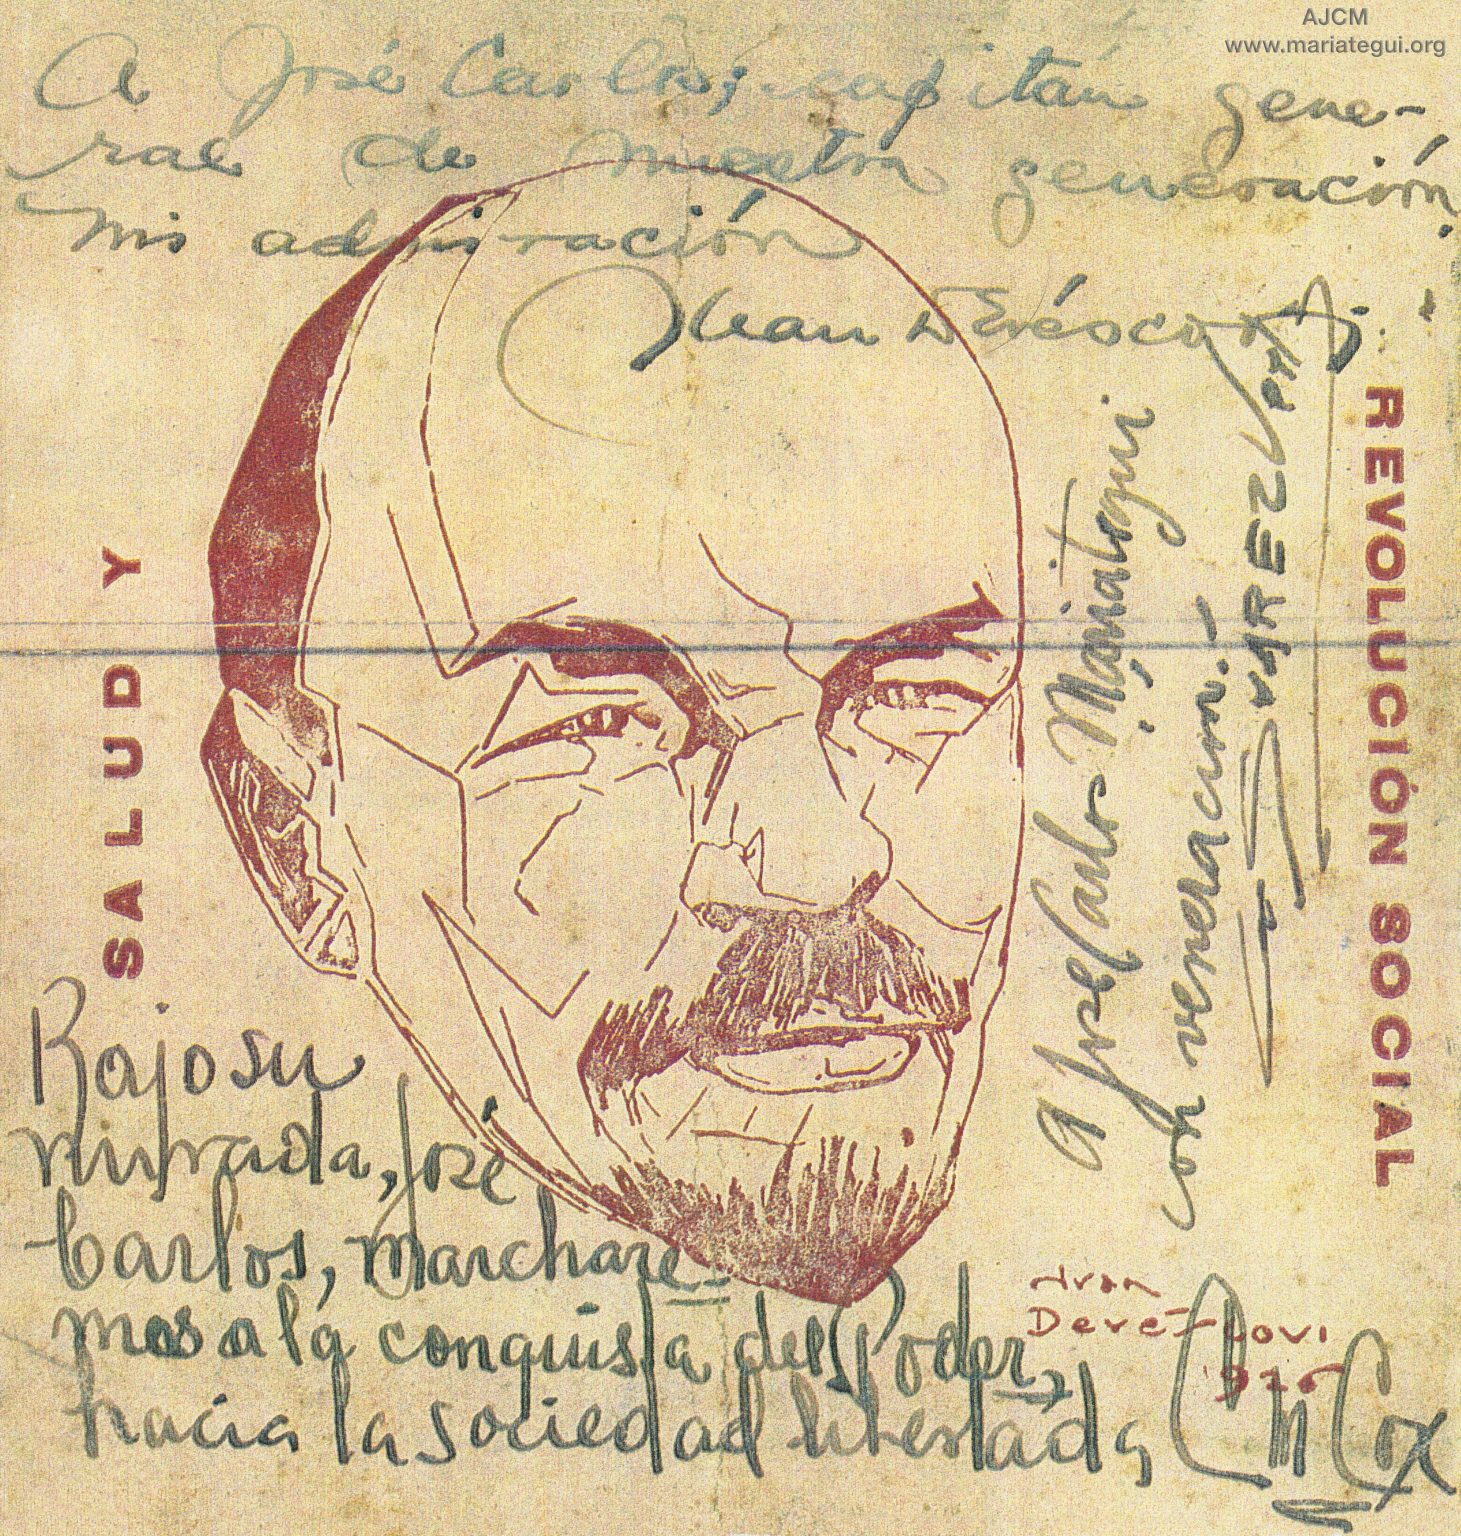 AJCM
www.mariategui.org
A José Carlos, capitán gene-
ral de nuestra generación,
mi admiración
Juan Devéscovi
SALUD Y
REVOLUCIÓN SOCIAL
A José Carlos Mariátegui
con veneración.
Bajo su
mirada, José
Carlos, marchare-
mos a la conquista del Poder,
hacia la sociedad libertada,
Juan
Devéscovi
Cox